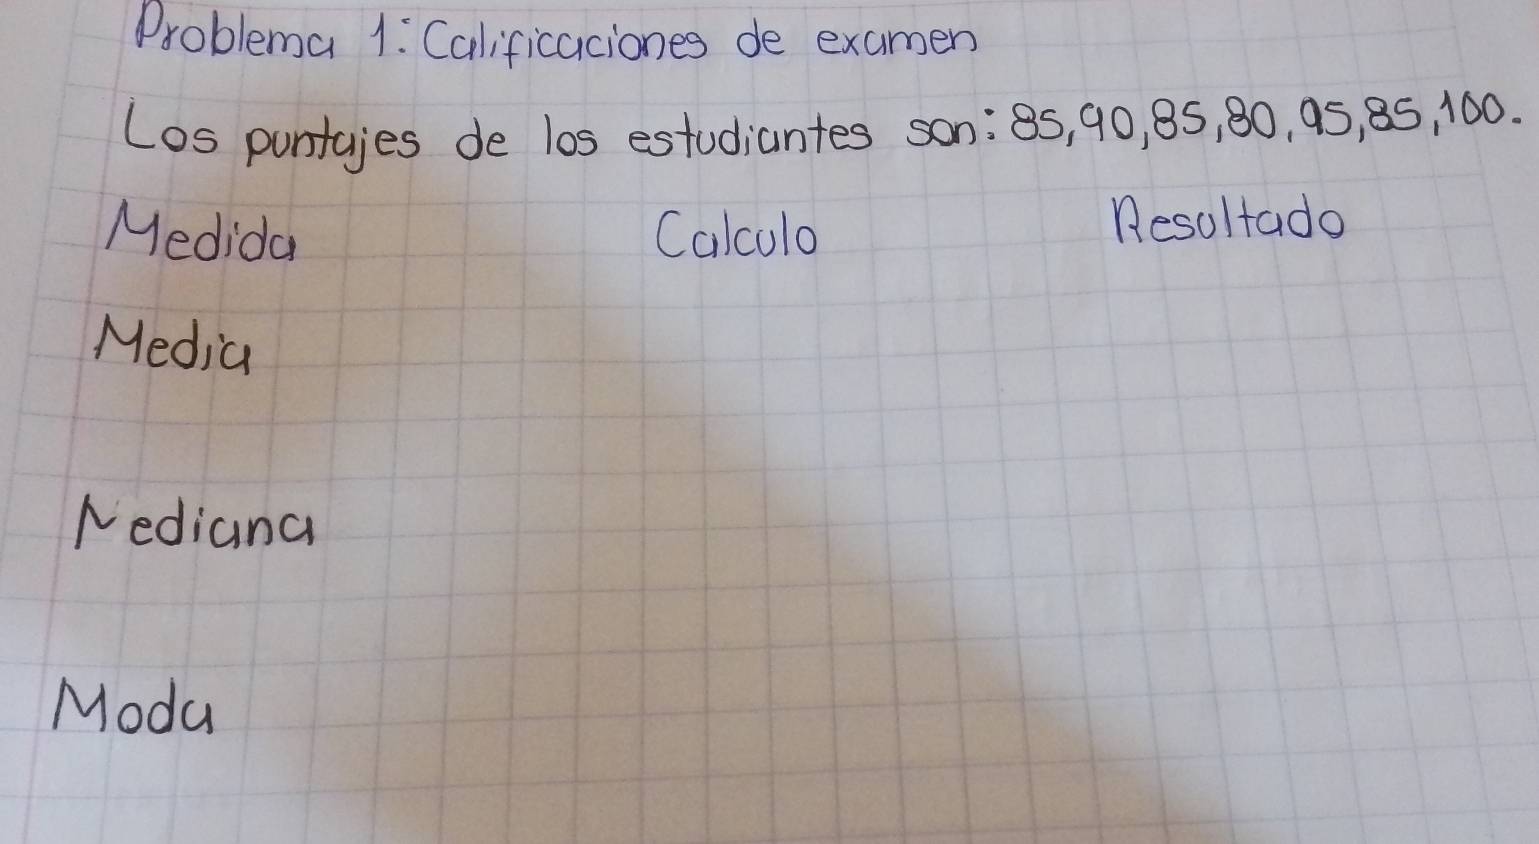 Problema 1: Calificaciones de examen
Los puntajes de los estudiantes son: 85, 90, 85, 80, 95, 85, 100.
Medida Calculo Resultado
Media
Mediana
Moda